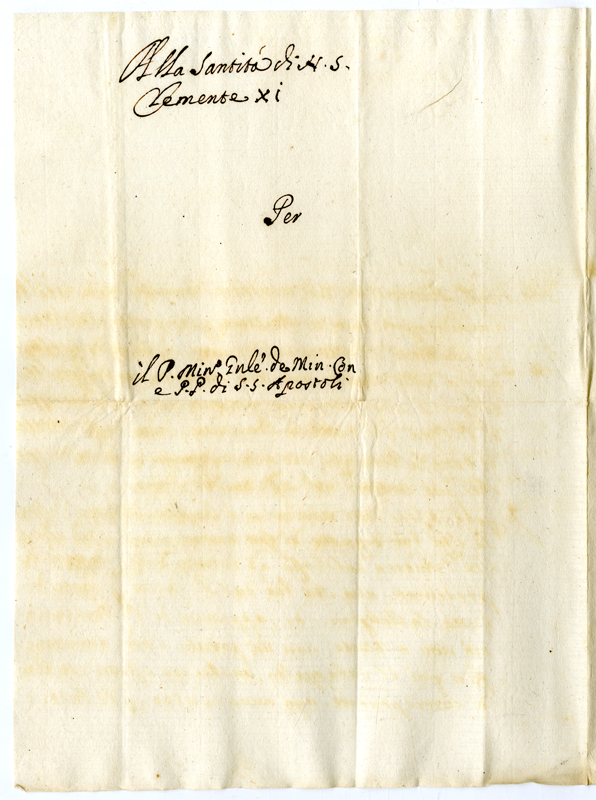 Alla Santità di N. S.
Clemente XI
Per
il P. Minō Gnlē. de Min. Con
e P.P. di S.S. Apostoli